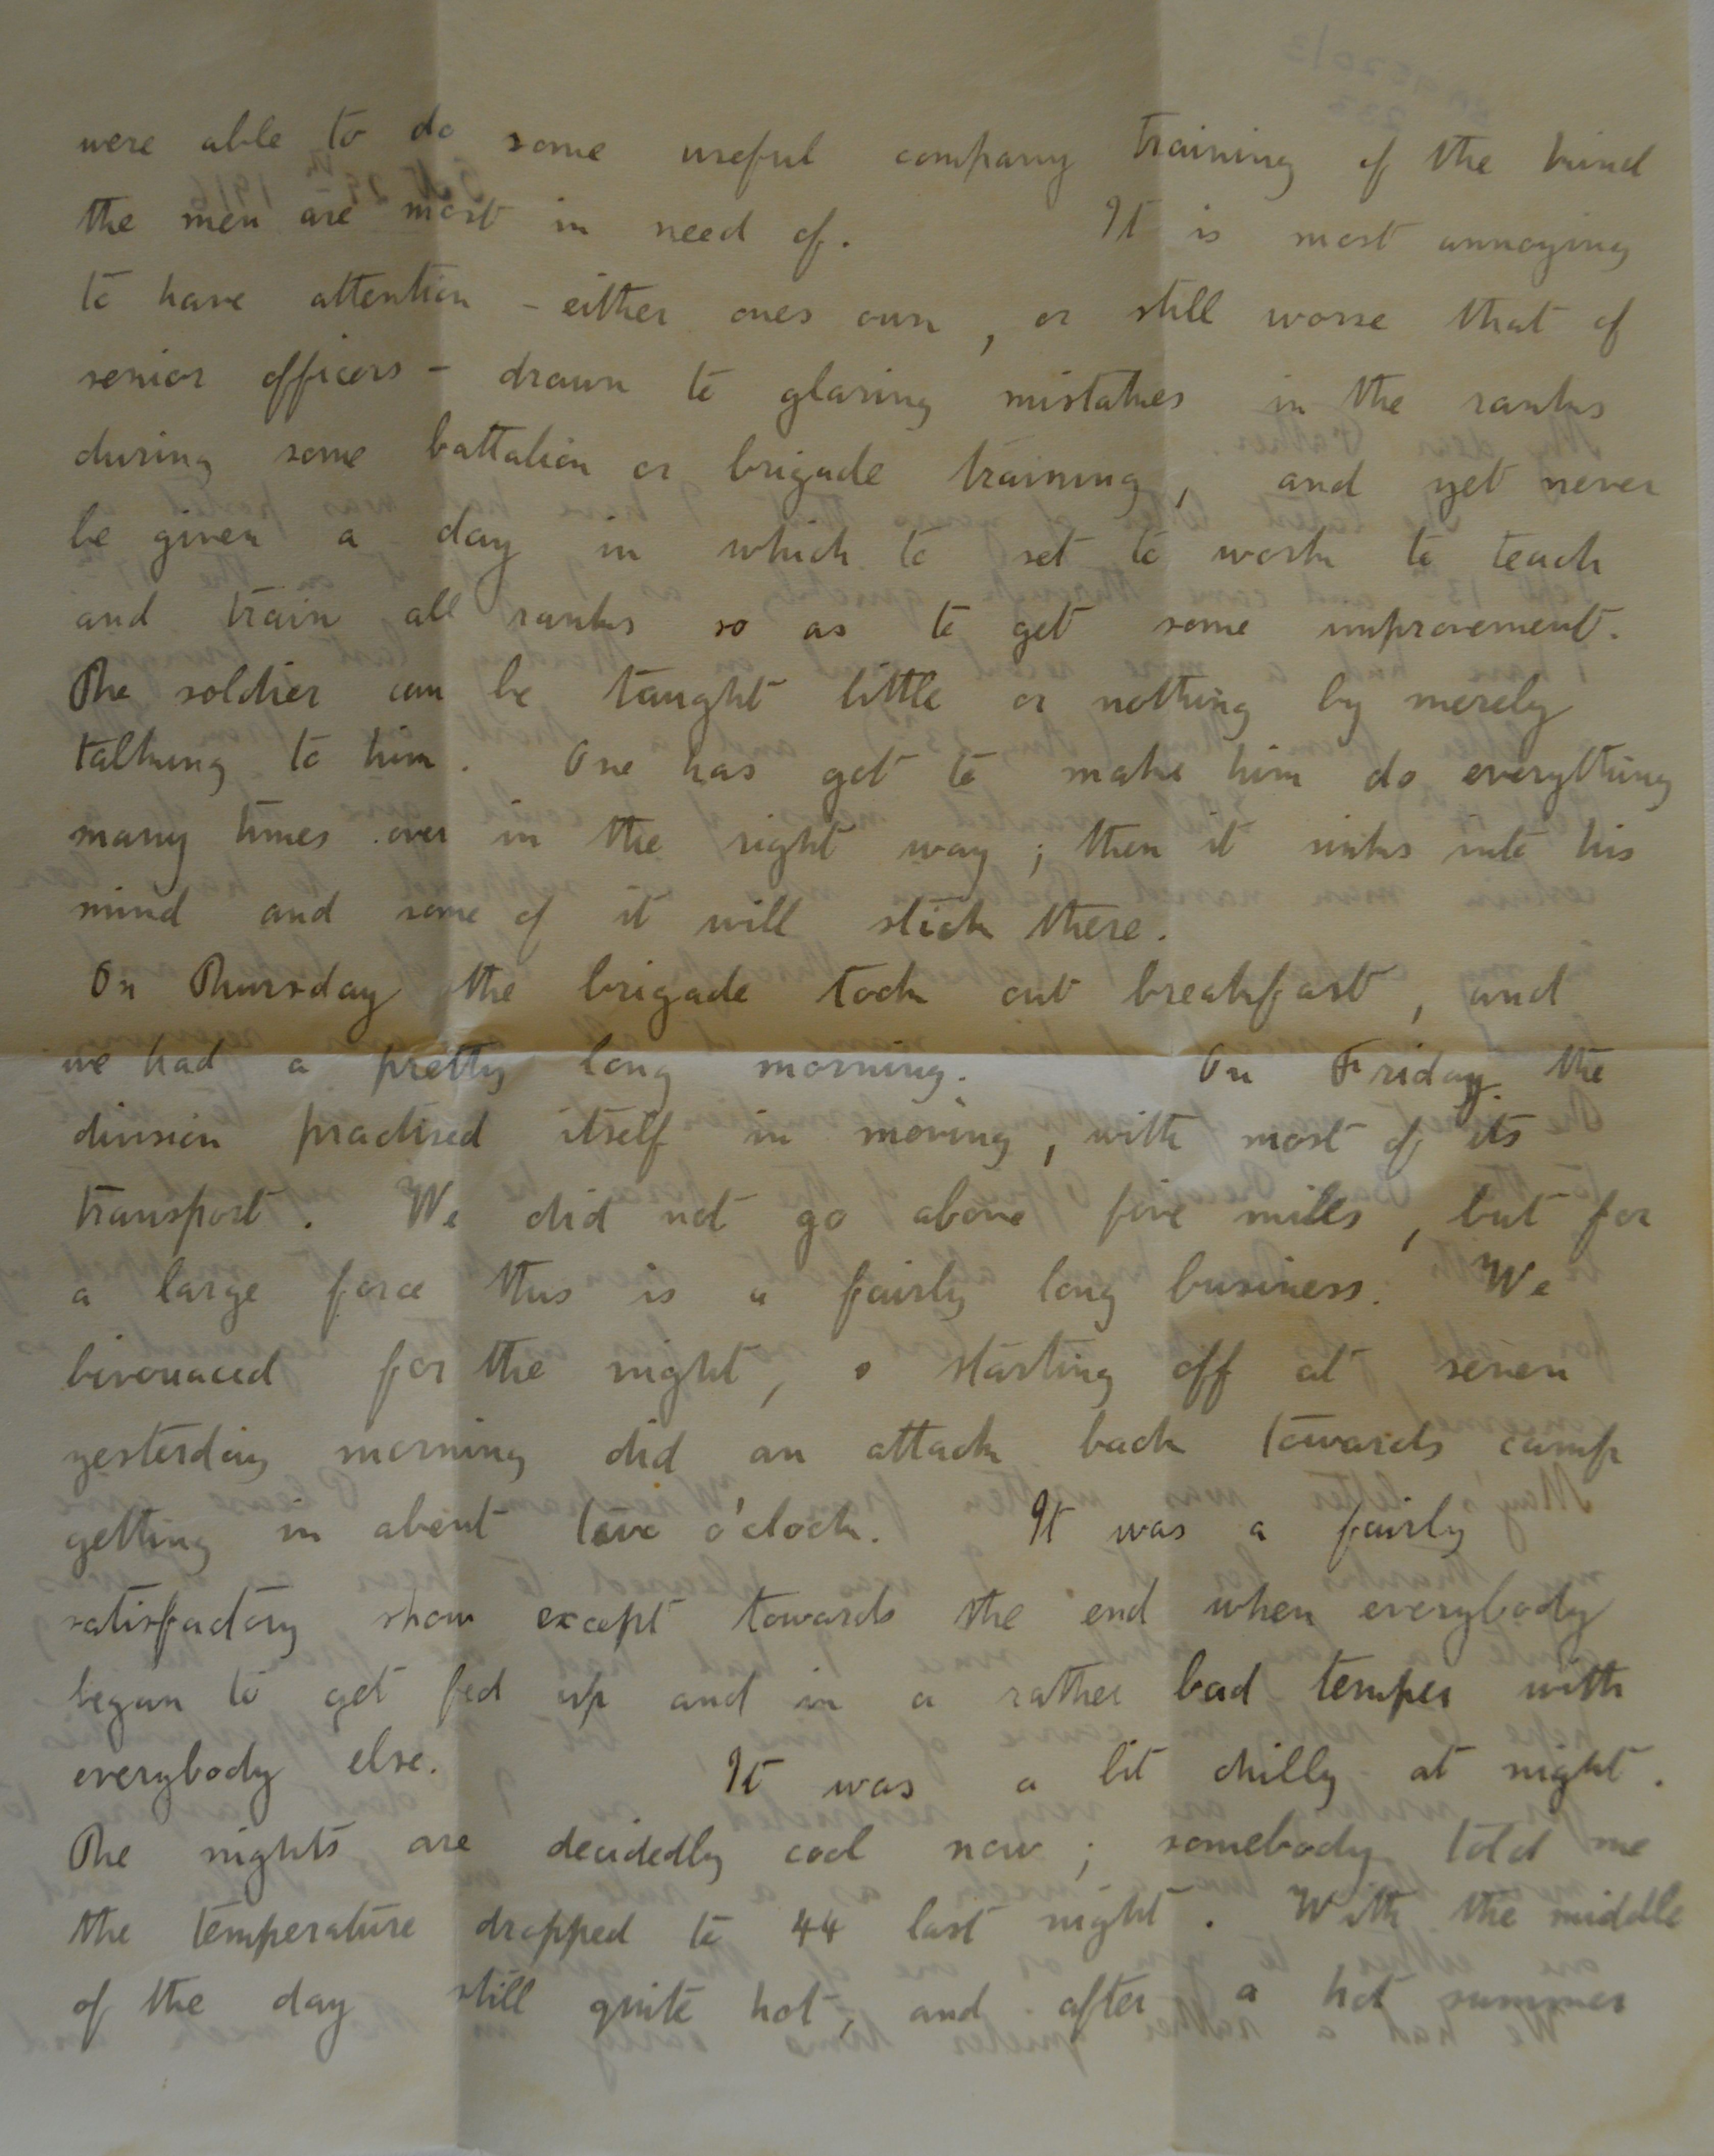 were able to do some useful company training of the kind
the men are most in need of. It is most annoying
to have attention - either ones own, or still worse that of
senior officers - drawn to glaring mistakes in the ranks
during some battalion or brigade training, and yet never
be given a day in which to set to work to teach
and train all ranks so as to get some improvement.
The soldier can be taught little or nothing by merely
talking to him. One has got to make him do everything
many times over in the right way; then it sinks into his
mind and some of it will stick there.
On Thursday the brigade took out breakfast, and
we had a pretty long morning. On Friday the
division practised itself in moving, with most of its
transport. We did not go above five miles, but for
a large force this is a fairly long business. We
bivouaced for the night, & starting off at seven
yesterday morning did an attack back towards camp
getting in about two o'clock. It was a fairly
satisfactory show except towards the end when everybody
began to get fed up and in a rather bad temper with
everybody else. It was a bit chilly at night.
The nights are decidedly cool now; somebody told me
the temperature dropped to 44 last night. With the middle
of the day still quite hot, and after a hot summer